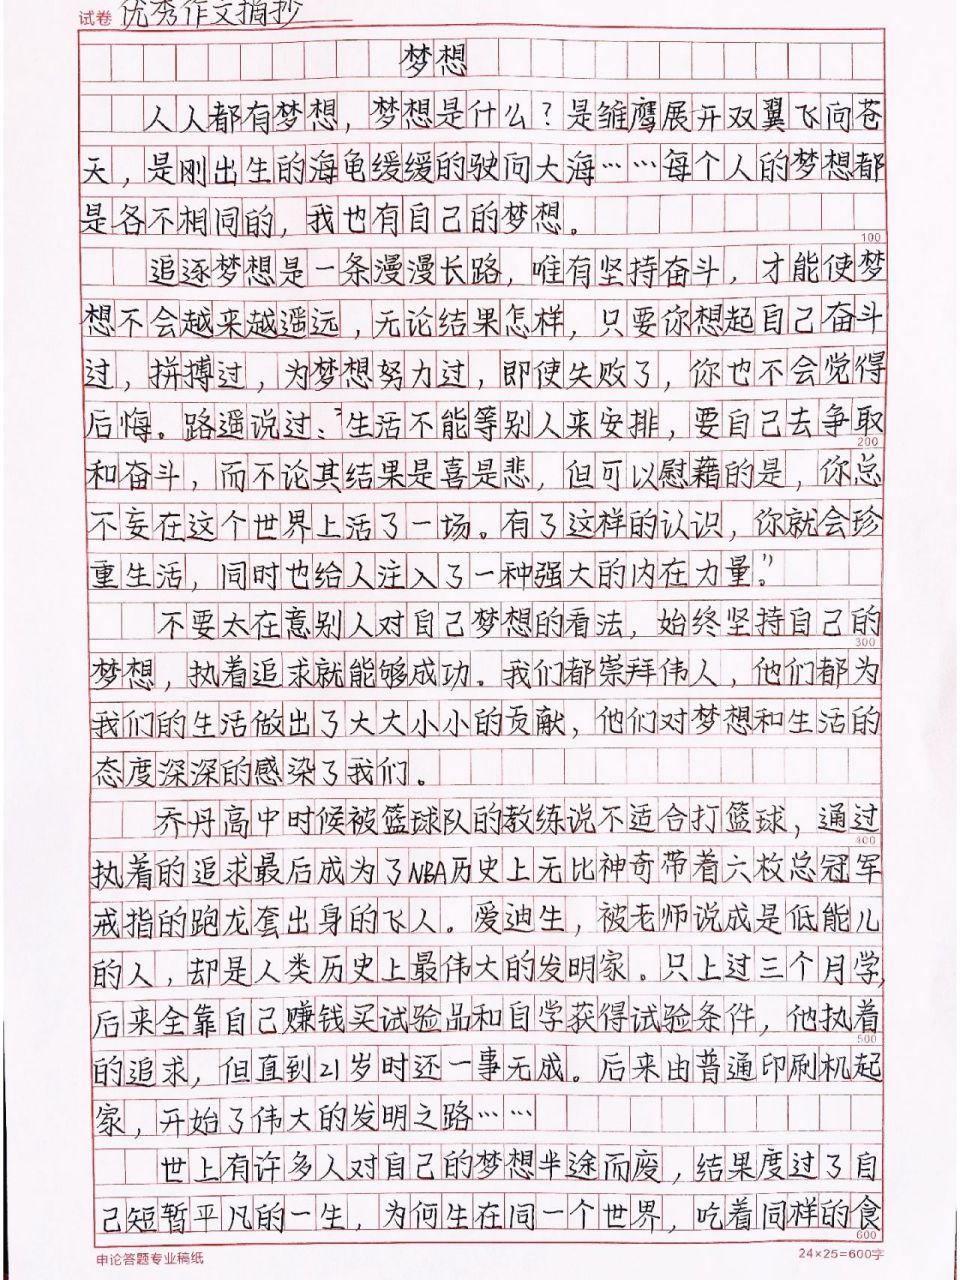 试卷 优秀作文摘抄
梦想
人人都有梦想，梦想是什么？是雏鹰展开双翼飞向苍
天，是刚出生的海龟缓缓的驶向大海……每个人的梦想都
是各不相同的，我也有自己的梦想。
100
追逐梦想是一条漫漫长路，唯有坚持奋斗，才能使梦
想不会越来越遥远，无论结果怎样，只要你想起自己奋斗
过，拼搏过，为梦想努力过，即使失败了，你也不会觉得
后悔。路遥说过：“生活不能等别人来安排，要自己去争取
200
和奋斗，而不论其结果是喜是悲，但可以慰藉的是，你总
不妄在这个世界上活了一场。有了这样的认识，你就会珍
重生活，同时也给人注入了一种强大的内在力量。”
不要太在意别人对自己梦想的看法，始终坚持自己的
300
梦想，执着追求就能够成功。我们都崇拜伟人，他们都为
我们的生活做出了大大小小的贡献，他们对梦想和生活的
态度深深的感染了我们。
乔丹高中时候被篮球队的教练说不适合打篮球，通过
400
执着的追求最后成为了NBA历史上无比神奇带着六枚总冠军
戒指的跑龙套出身的飞人。爱迪生，被老师说成是低能儿
的人，却是人类历史上最伟大的发明家。只上过三个月学，
后来全靠自己赚钱买试验品和自学获得试验条件，他执着
500
的追求，但直到21岁时还一事无成。后来由普通印刷机起
家，开始了伟大的发明之路……
世上有许多人对自己的梦想半途而废，结果度过了自
己短暂平凡的一生，为何生在同一个世界，吃着同样的食
600
申论答题专业稿纸
24×25=600字